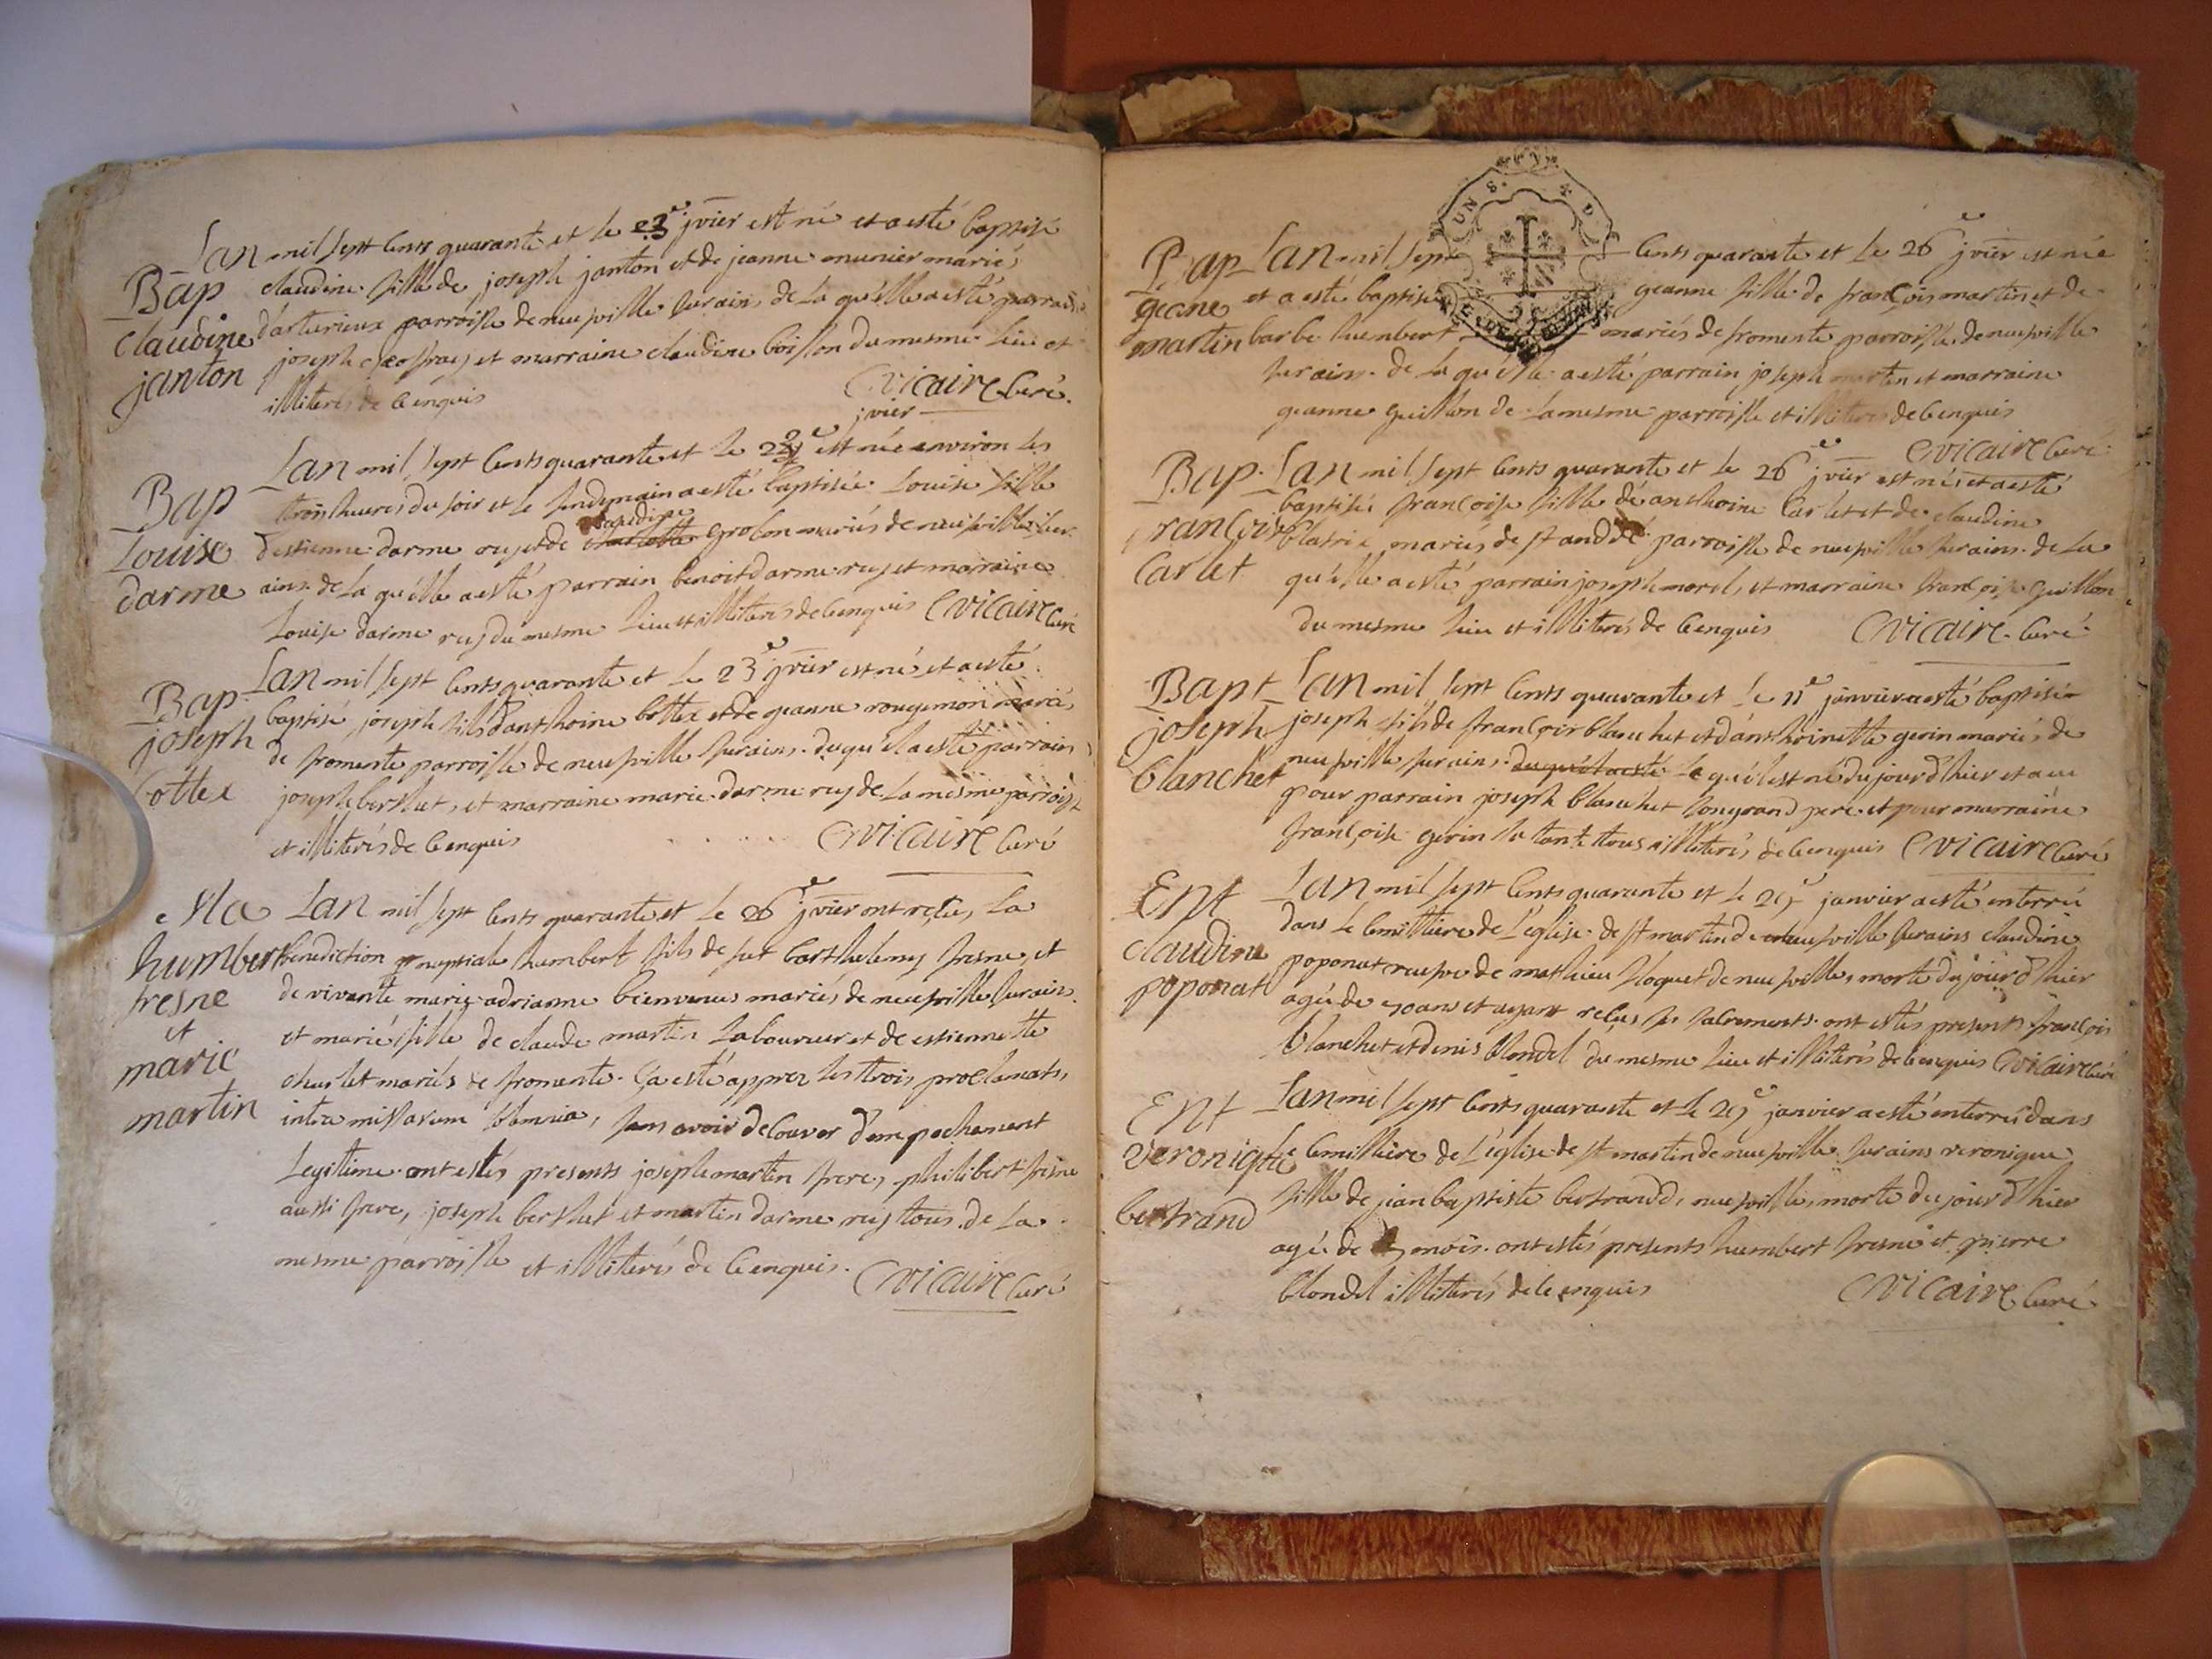 Bap
claudine
janton
Lan mil sept cents quarante et le 23e jvier est né et a esté baptisé
claudine fille de joseph janton et de jeanne munier mariés
d'arturieux parroisse de neufville surains de la qu'elle a esté parrain
joseph et marraine claudine boisson du mesme lieu et
illiterés de ce enquis Cvicaire Curé.
Bap
Louise
darme
Lan mil sept cents quarante et le 22e jvier est née environ les
trois heures du soir et le lendemain a esté baptisée Louise fille
d'estienne darme ruy et de claudine grobon mariés de neufville sur
ains de la qu'elle a esté parrain benoit darme ruy et marraine
Louise darme ruy du mesme lieu et illiterés de ce enquis Cvicaire Curé
Bap
joseph
Cottex
Lan mil sept cents quarante et le 23e jvier est né et a esté
baptisé joseph fils d'anthoine cottex et de geanne rougemon mariés
de fromente parroisse de neufville surains duqu'el a esté parrain
joseph berthet, et marraine marie darme ruy de la mesme parroisse
et illiterés de ce enquis Cvicaire Curé
Ma
humbert
fresne
et
marie
martin
Lan mil sept cents quarante et le 26e jvier ont reçus La
benediction nuptiale humbert fils de fut barthelemy fresne et
de vivante marie adrianne bienvenus mariés de neufville surains
et marie fille de claude martin Laboureur et de estiennette
charlet mariés de fromente. Ca esté apprez les trois proclamats,
intra missarum solemnia, sans avoir decouver d'empechement
Legitime ont estés presents joseph martin frere, philibert fresne
aussi frere, joseph berthet et martin darme ruy tous de la
mesme parroisse et illiterés de ce enquis. Cvicaire Curé
Bap
geane
martin
Lan mil sept cents quarante et le 26e jvier est née
et a esté baptisée geanne fille de françois martin et de
barbe humbert mariés de fromente parroisse de neufville
surains de la qu'elle a esté parrain joseph martin et marraine
geanne guillon de la mesme parroisse et illiterés de ce enquis
Cvicaire Curé
Bap
françoise
Carlet
Lan mil sept cents quarante et le 26e jvier est née et a esté
baptisée françoise fille de anthoine Carlet et de claudine
mariés de st andré parroisse de neufville surains de la
qu'elle a esté parrain joseph morel, et marraine françoise guillon
du mesme lieu et illiterés de ce enquis Cvicaire Curé
Bapt
joseph
blanchet
Lan mil sept cents quarante et le 11e janvier a esté baptisé
joseph fils de françois blanchet et d'anthoinette gerin mariés de
neufville surains. duquel a esté Le qu'el est né du jour d'hier et a eu
pour parrain joseph blanchet son grand pere et pour marraine
françoise gerin sa tante tous illiterés de ce enquis Cvicaire Curé
Ent
claudine
poponat
Lan mil sept cents quarante et le 29e janvier a esté enterrée
dans Le cemittiere de L'eglise de st martin de neufville surains claudine
poponat veufve de mathieu floquet de neufville, morte du jour d'hier
agée de 70 ans et ayant reçus ses sacrements ont estés presents françois
blanchet et denis blondel du mesme lieu et illiterés de ce enquis Cvicaire Curé
Ent
veronique
bertrand
Lan mil sept cents quarante et le 29e janvier a esté enterrée dans
le cemittiere de L'eglise de st martin de neufville surains veronique
fille de jean baptiste bertrand, neufville, morte du jour d'hier
agée de mois. ont estés presents humbert fresne et pierre
blondel illiterés de ce enquis Cvicaire Curé